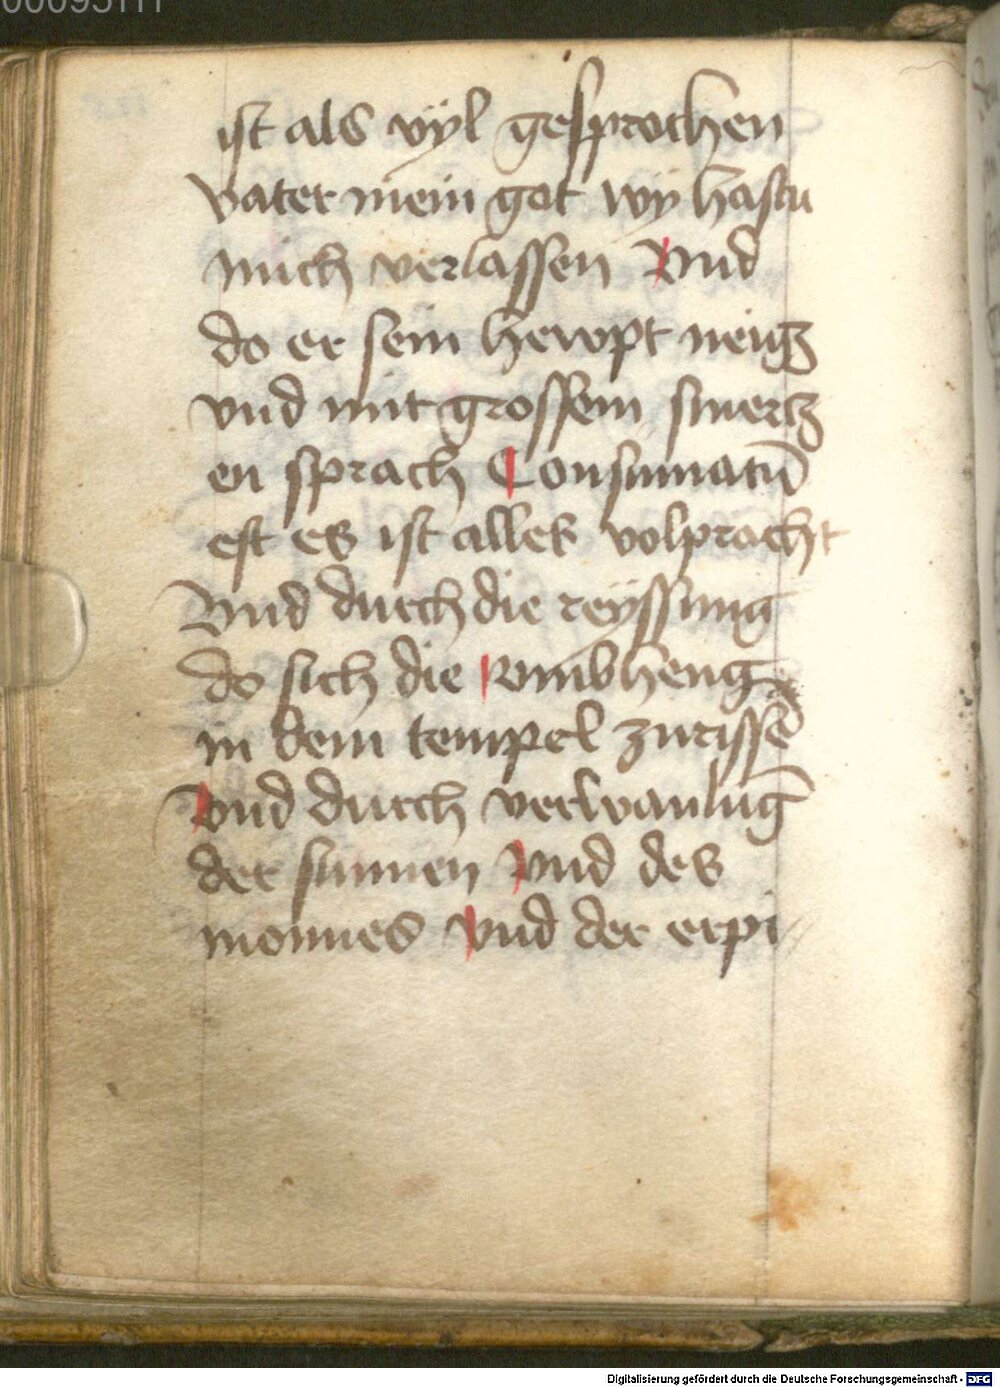 ist als vÿl gesprochen
vater mein got wÿ hastu
mich verlassen Vnd
do er sein hewpt neigt
vnd mit grossem smertz
en sprach Consumatū
est es ist alles volpracht
Vnd durch die reÿssung
do sich die vmbheng
in dem tempel zurissē
Vnd durch
der sunnen Vnd des
monnes Vnd der erpi
Digitalisierung gefördert durch die Deutsche Forschungsgemeinschaft - DFG